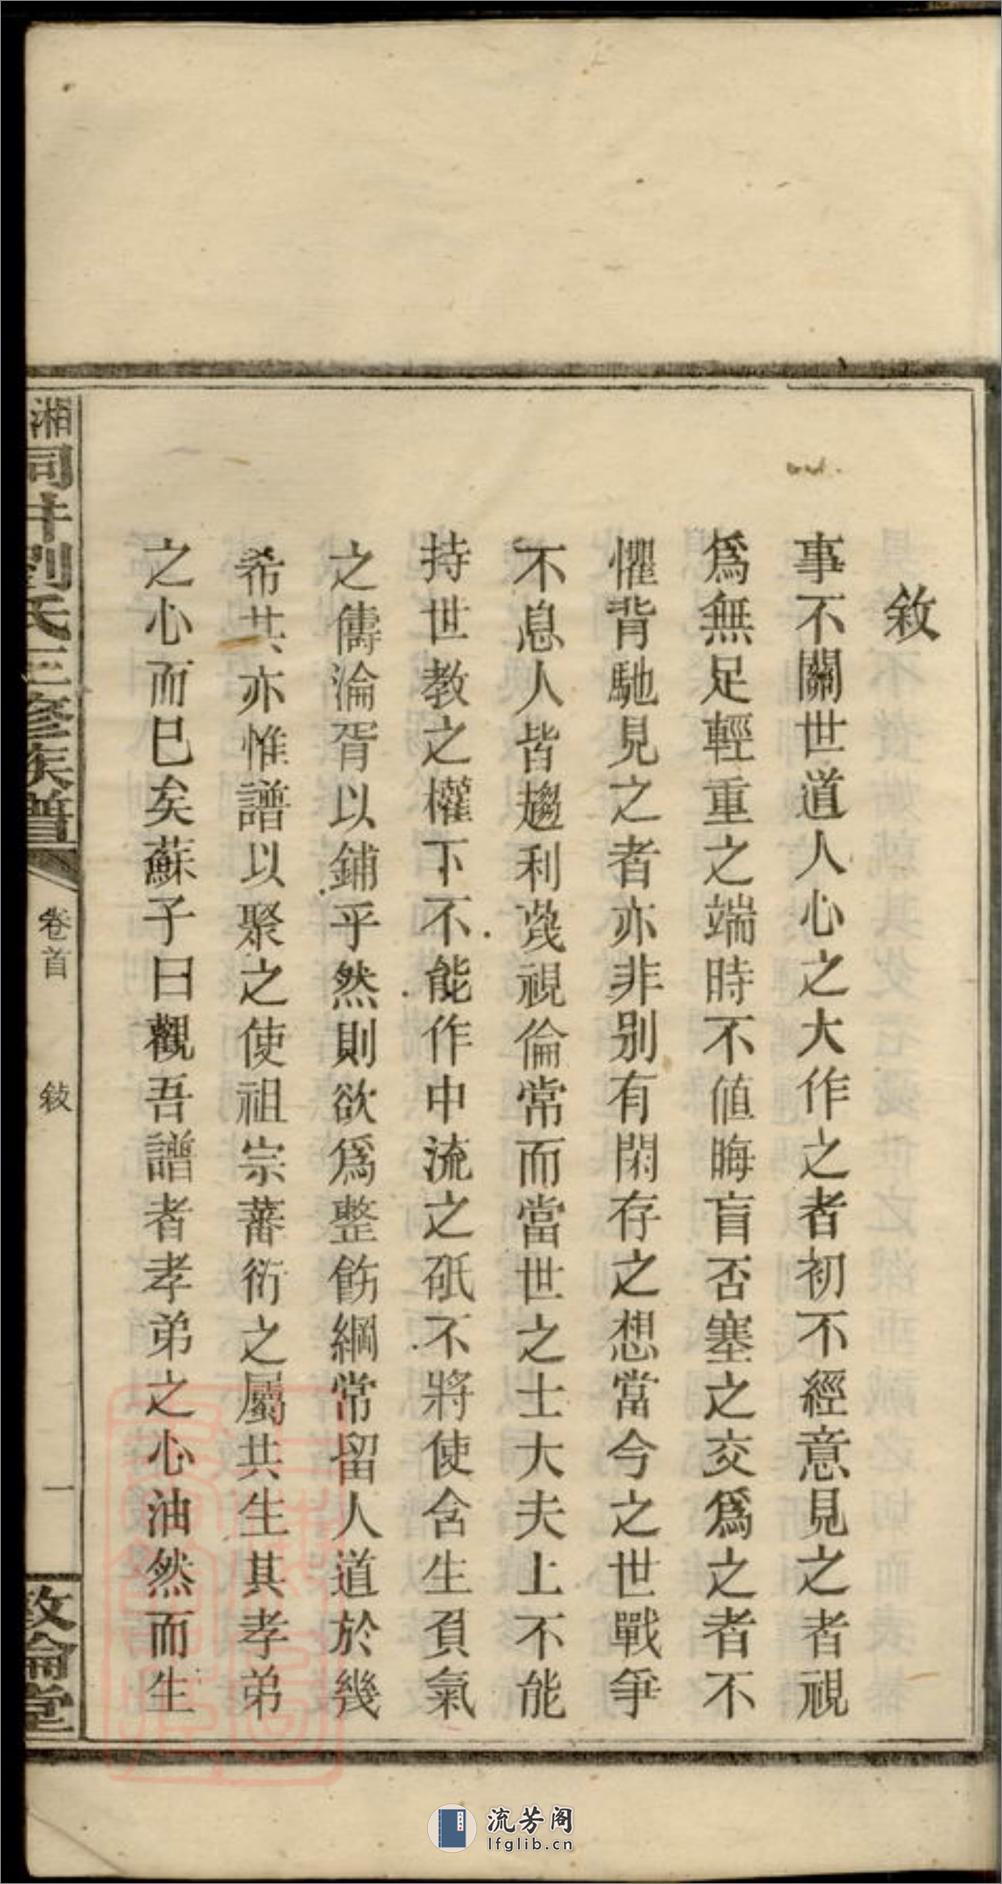 敘
事不關世道人心之大作之者初不經意見之者視
爲無足輕重之端時不値晦盲否塞之交爲之者不
懼背馳見之者亦非别有閑存之想當今之世戰爭
不息人皆趨利蔑視倫常而當世之士大夫上不能
持世教之權下不能作中流之砥不將使含生負氣
之儔淪胥以鋪乎然則欲爲整飭綱常留人道於幾
希其亦惟譜以聚之使祖宗蕃衍之屬共生其孝弟
之心而已矣蘇子曰觀吾譜者孝弟之心油然而生
湘
劉氏三修族譜
卷首
敍
一
敦倫堂
流芳阁
lfglib.cn